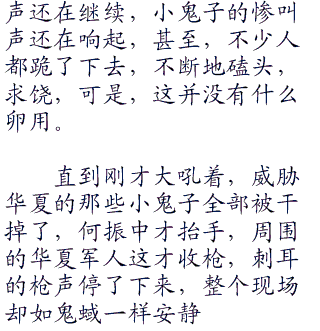 声还在继续，小鬼子的惨叫
声还在响起，甚至，不少人
都跪了下去，不断地磕头，
求饶，可是，这并没有什么
卵用。
直到刚才大吼着，威胁
华夏的那些小鬼子全部被干
掉了，何振中才抬手，周围
的华夏军人这才收枪，刺耳
的枪声停了下来，整个现场
却如鬼蜮一样安静